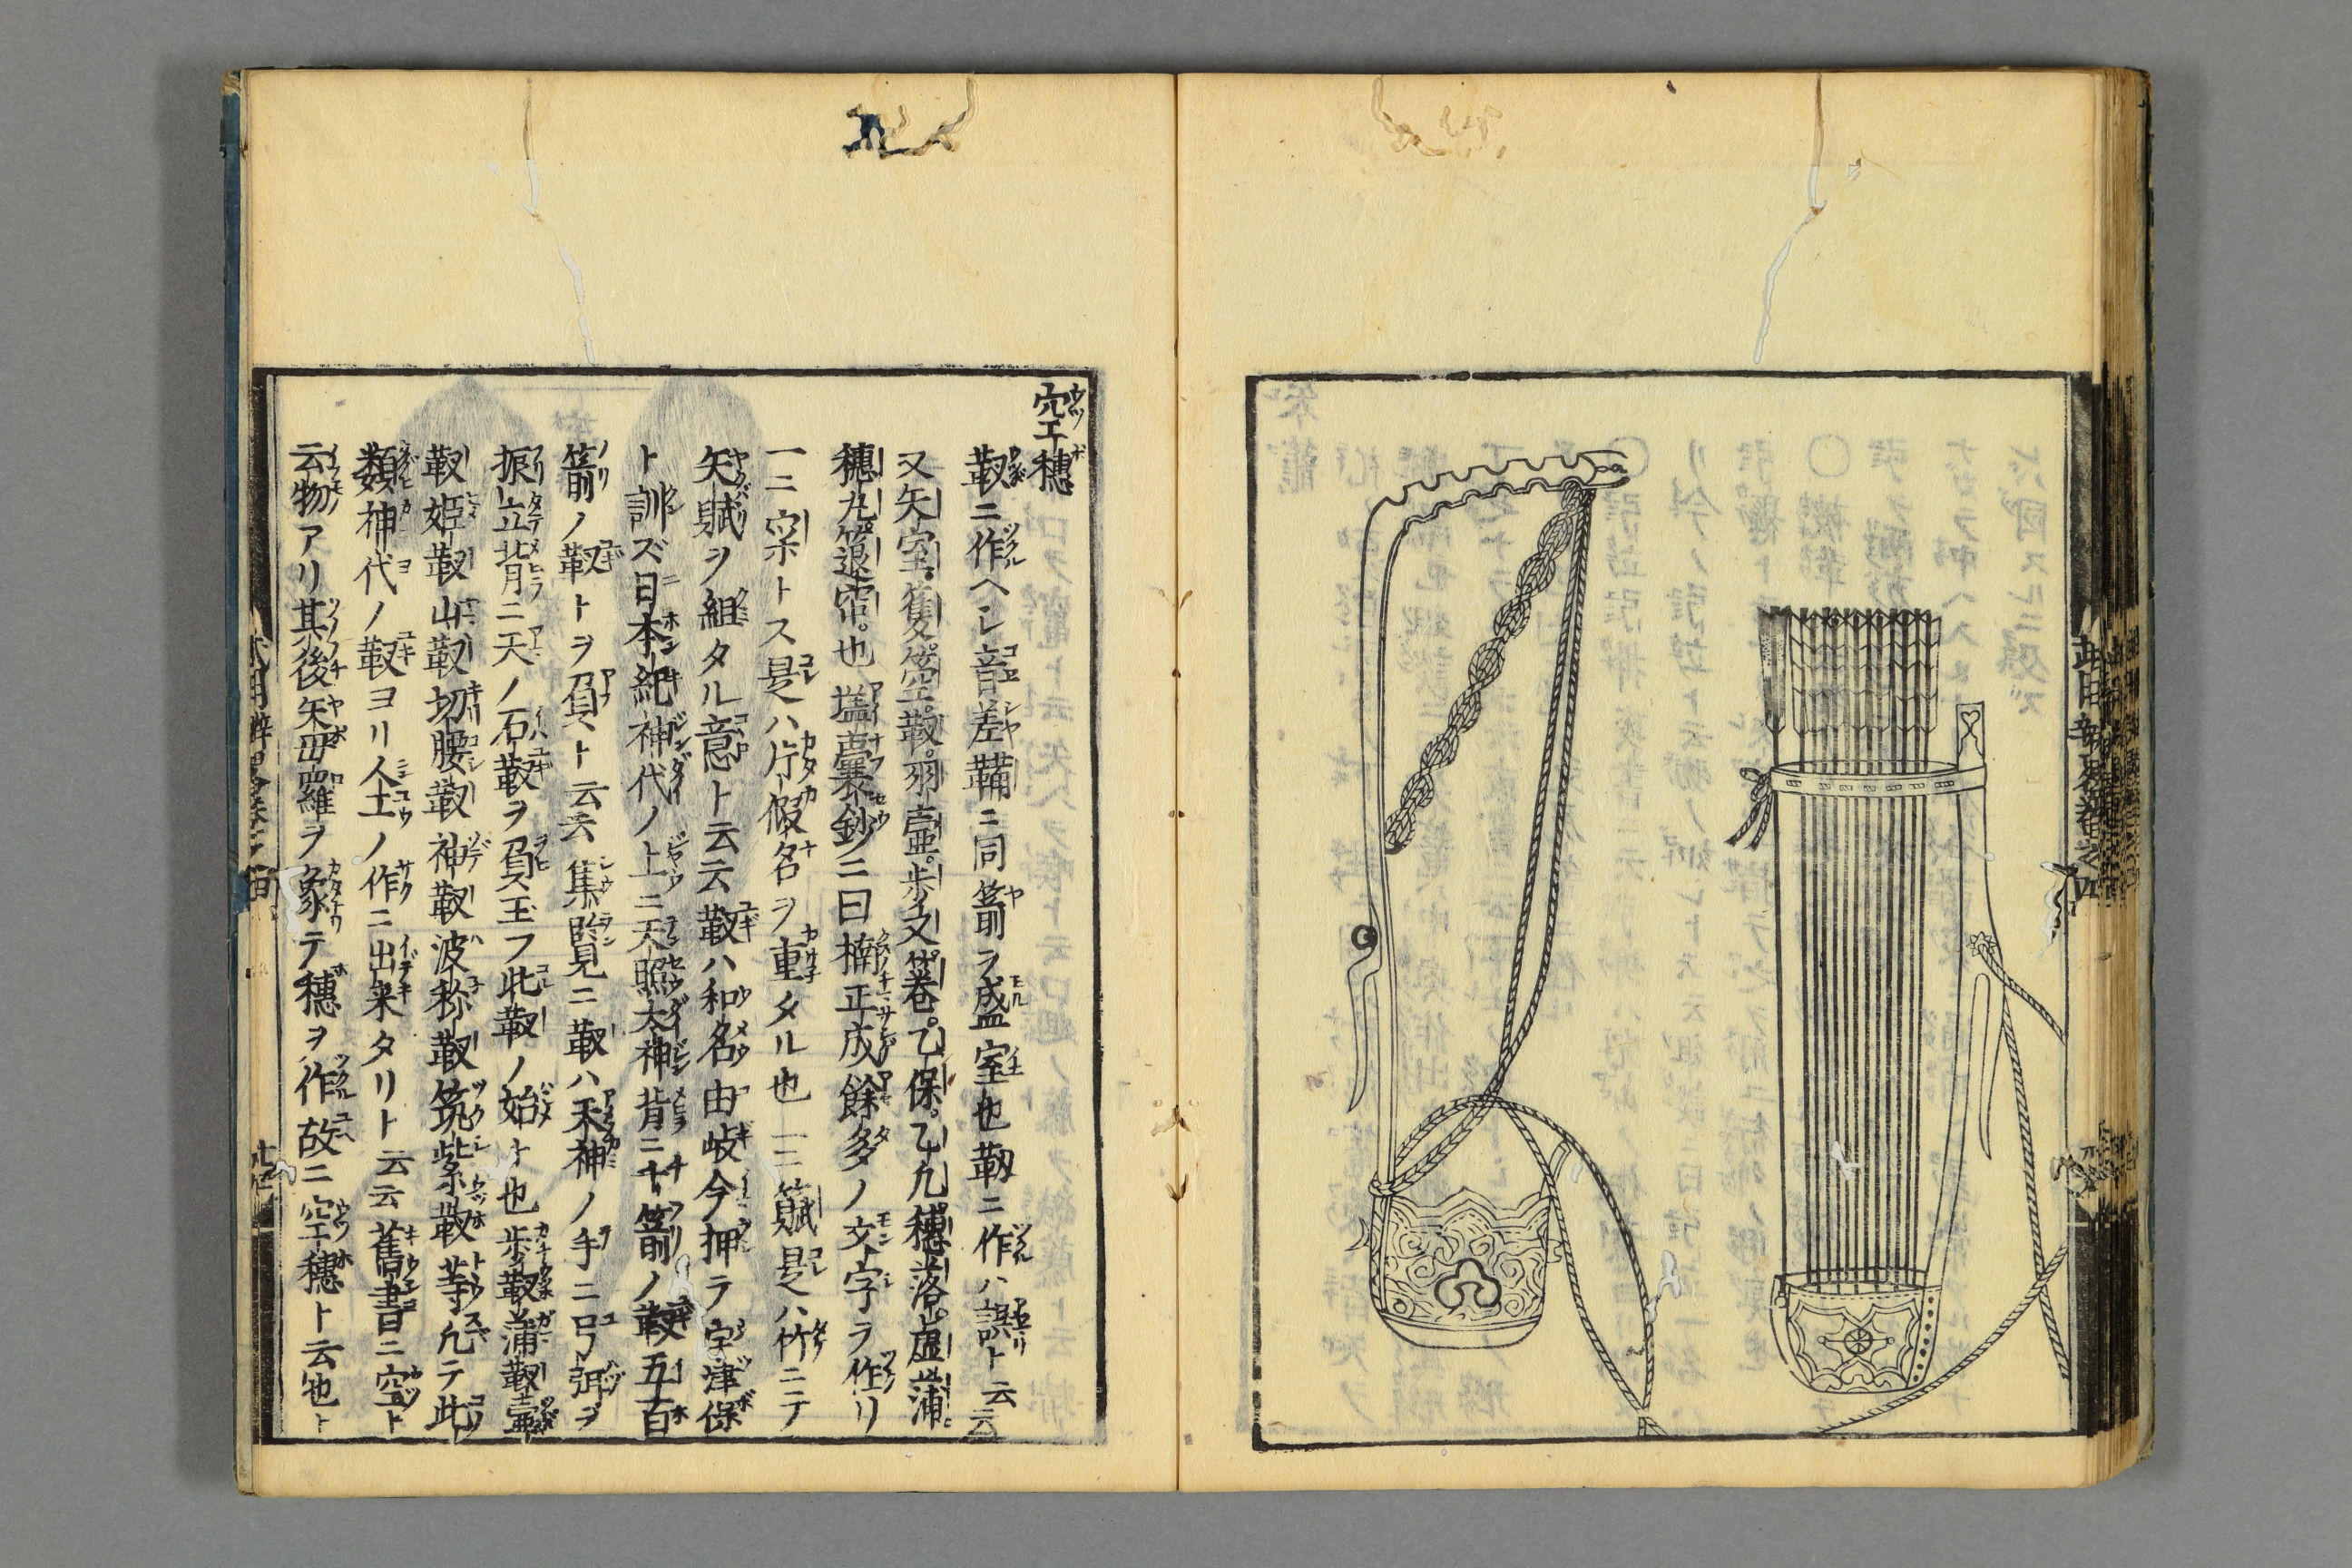 空穂
靫ニ作ヘシ音差鞴ニ同箭ヲ盛室也靱ニ作ハ誤ト云云
又矢室。篗。空。靫。羽壷。歩叉。巻。乙保。乙九穂落。虚蒲。
穂九箙帘。也壒嚢鈔ニ曰楠正成餘多ノ文字ラ作リ
一ニ穼トス是ハ片假名ヲ重タル也一ニ箙是ハ竹ニテ
矢賦ヲ組タル意ト云云靫ハ和名由岐今押テ宇津保
ト訓ズ日本紀神代ノ上ニ天照大神背ニ千箭ノ靫五百
箭ノ靫トヲ負ト云云集覧ニ靫ハ天神ノ手ニ弓弭ヲ
振立背ニ天ノ石靫ヲ負玉フ此靫ノ始ナ也歩靫蒲靫壷
靫姫靫山靫切腰靫神靫波称靫筑紫靫等凡テ此
類神代ノ靫ヨリ人土ノ作ニ出来タリト云云舊書ニ空ト
云物アリ其後矢母羅ヲ象テ穂ヲ作故ニ空穂ト云也ト